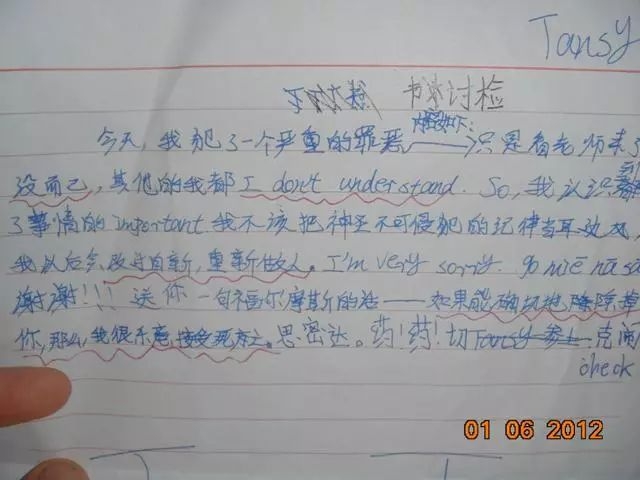 Tansy
书求讨检
内容如下:
今天,我犯了一个严重的罪恶——只是看老师来了
没而已,其他的我都I don't understand. So,我认识到
了事情的important.我不该把神圣不可侵犯的记律当耳边风,
我以后会改过自新,重新做人。I'm very sorry. go miē nā sā
谢谢!!!送你一句福尔摩斯的话——如果能确切地除掉
你,那么我很乐意接受死亡。思密达。药!药!切Tansy 参上 克闹
check
01 06 2012